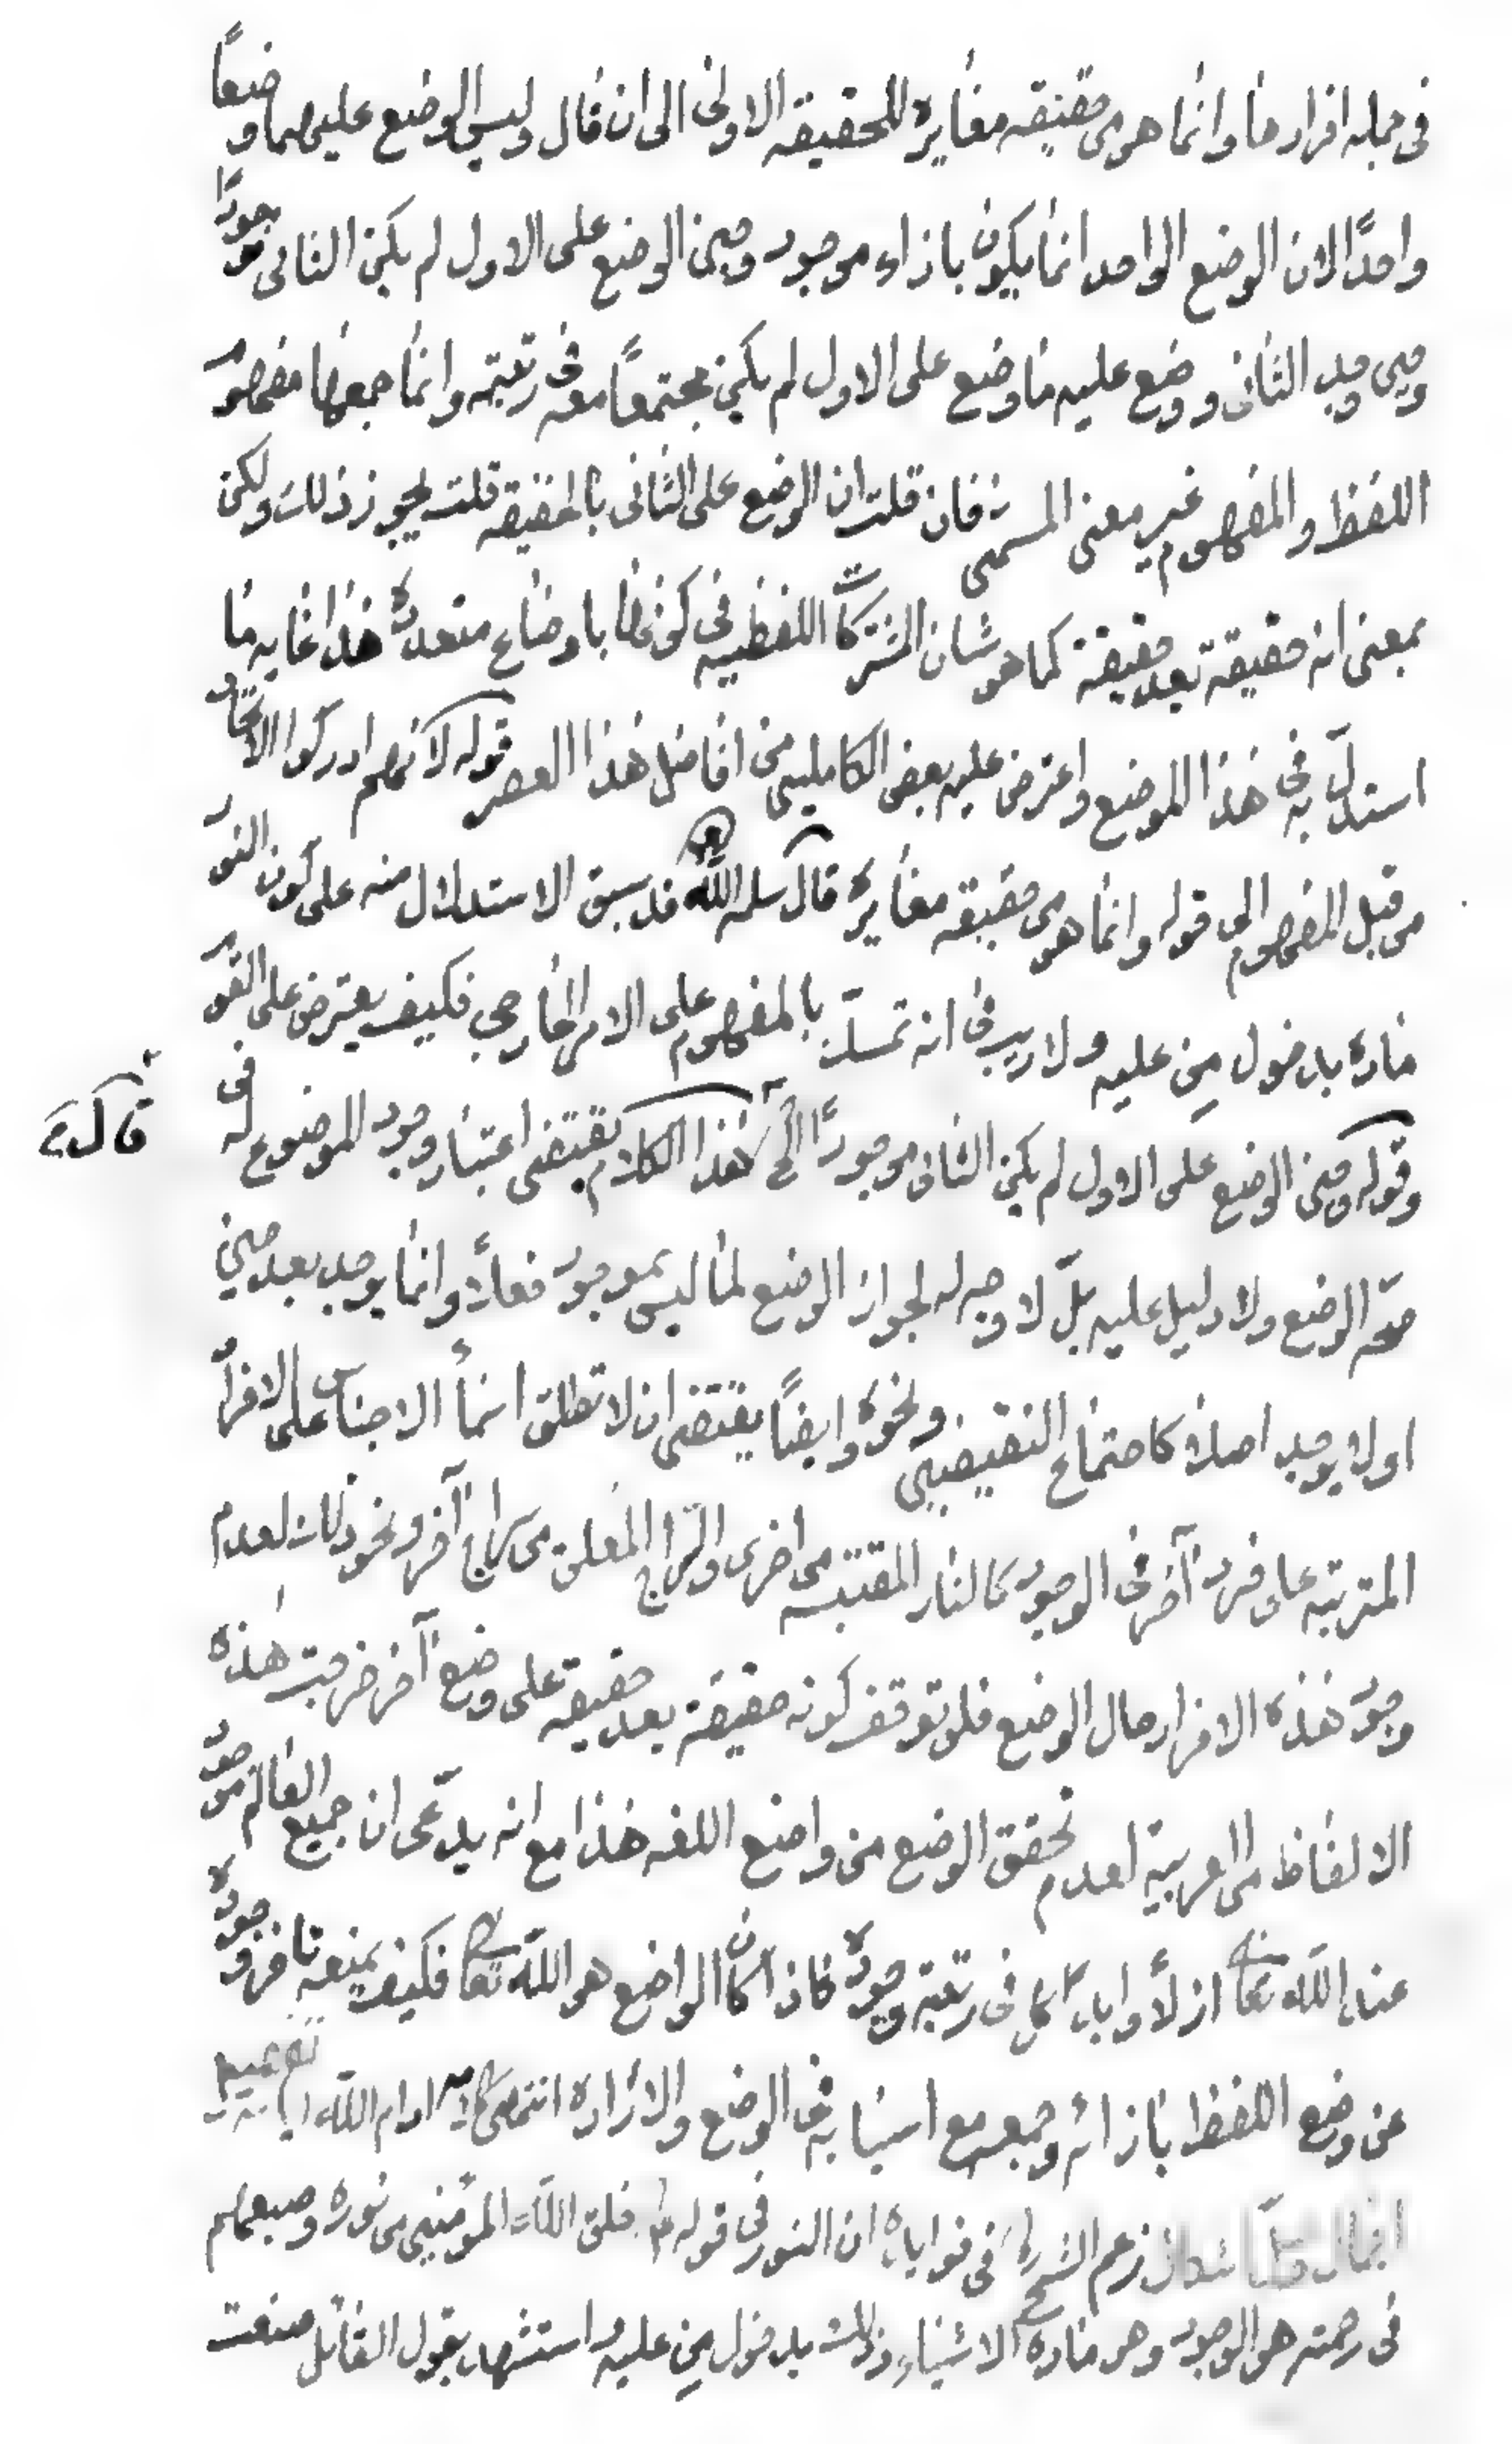 في جملة افرادها وانما هو من حقيقة مغايرة للحقيقة الاولى الى ان قال وليس الوضع عليهما وضعًا
واحدًا لان الوضع الواحد انما يكون بازاء موجود وحين الوضع على الاول لم يكن الثاني موجودًا
وحين وجد الثاني ووضع عليه ما وضع على الاول لم يكن مجتمعًا معه في رتبته وانما جمعهما مفهوم
اللفظ والمفهوم غير معنى المسمى فان قلت ان الوضع على الثاني بالحقيقة قلت يجوز ذلك ولكن
بمعنى انه حقيقة بعد حقيقة كما هو شان المشتركات اللفظية في كونها باوضاع متعددة هذا غاية ما
استدل به في هذا الموضع واعترض عليه بعض الكاملين من افاضل هذا العصر قوله لانهم ادركوا الاتحاد
من قبل المفهوم الى قوله وانما هو من حقيقة مغايرة قال سلمه الله قد سبق الاستدلال منه على كون النور
مادة بدخول مِن عليه ولا ريب في انه تمسك بالمفهوم على الامر الخارجي فكيف يعترض على القوم
وقوله وحين الوضع على الاول لم يكن الثاني موجودًا الخ هذا الكلام يقتضي اعتبار وجود الموضوع له في
قال
صحة الوضع ولا دليل عليه بل لا وجه له لجواز الوضع لما ليس بموجود فعلًا وانما يوجد بعد حين
او لا يوجد اصلا كاجتماع النقيضين ونحوه وايضًا يقتضي ان لا تطلق اسماء الاجناس على الافراد
المترتبة على فرد آخر في الوجود كالنار المقتبسة من اخرى والسراج المعلق من سراج آخر ونحو ذلك لعدم
وجود هذه الافراد حال الوضع فلو توقف كونه حقيقة بعد حقيقة على وضع آخر خرجت هذه
الالفاظ من العربية لعدم تحقق الوضع من واضع اللغة هذا مع انه يدعي ان جميع العالم موجود
عند الله تعالى ازلًا وابدا كل في رتبة وجوده فاذا كان الواضع هو الله تعالى فكيف يمنعه تاخر وجوده
عن وضع اللفظ بازائه وجمعه مع اسبابه في الوضع والارادة انتهى كلامه ادام الله ايامه
زعم الشيخ في فوايده ان النور في قوله خلق الله المؤمنين من نوره وصبغهم
في رحمته هو الوجود وهو مادة الاشياء وذلك بدخول مِن عليه واستشهد بقول القائل صنعت